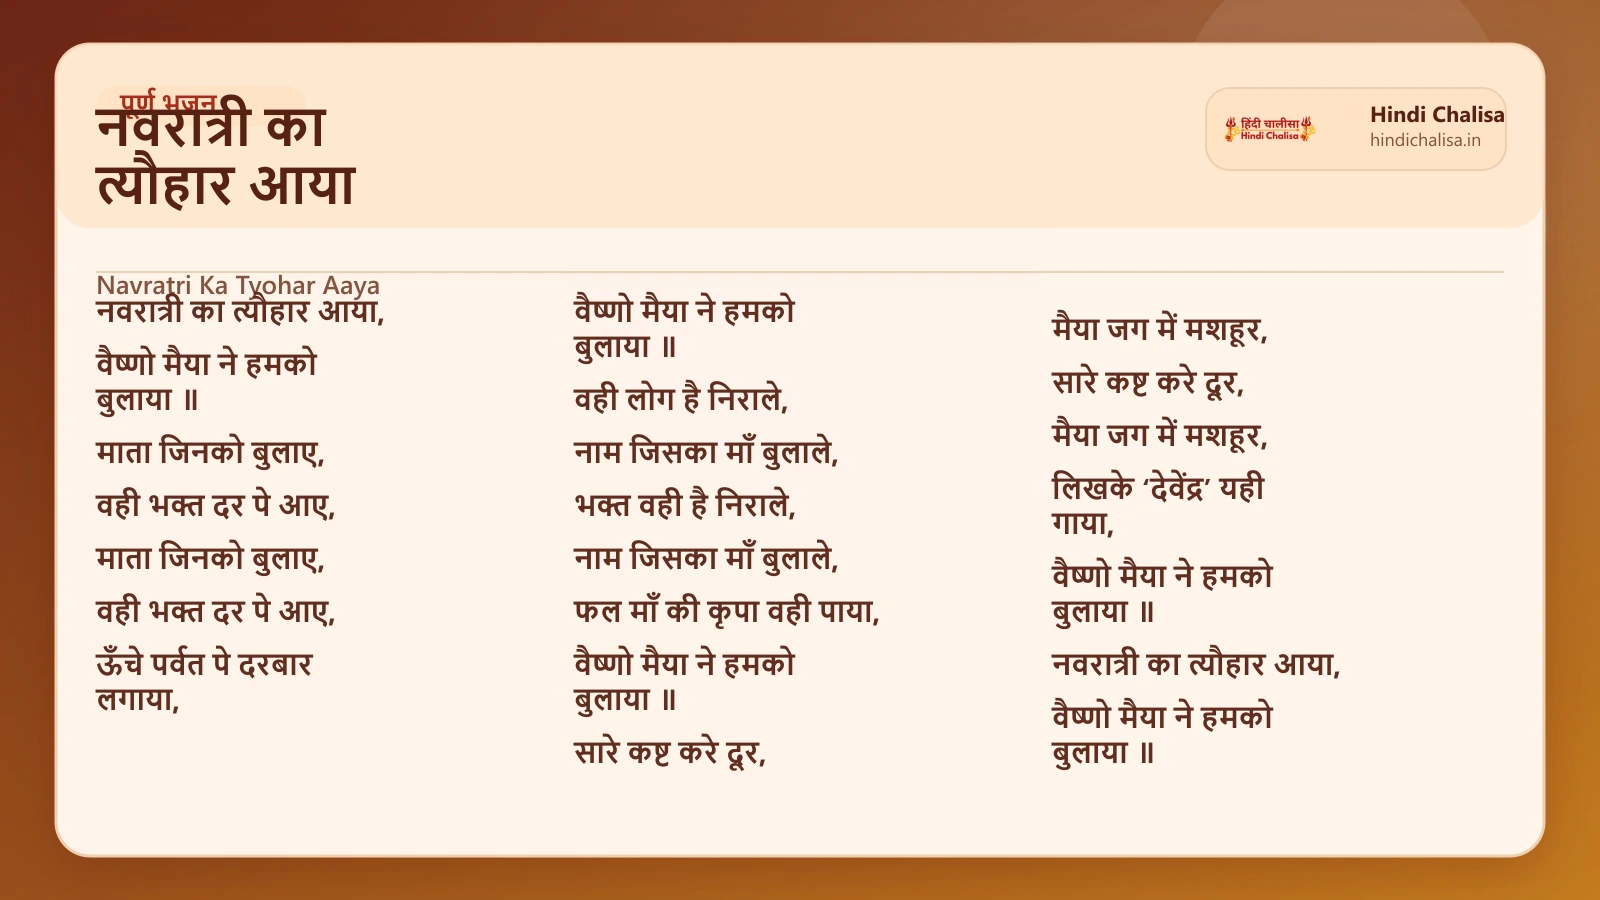 पूर्ण भजन
नवरात्री का
त्यौहार आया
हिंदी चालीसा
Hindi Chalisa
Hindi Chalisa
hindichalisa.in
Navratri Ka Tyohar Aaya
नवरात्री का त्यौहार आया,
वैष्णो मैया ने हमको
बुलाया ॥
माता जिनको बुलाए,
वही भक्त दर पे आए,
माता जिनको बुलाए,
वही भक्त दर पे आए,
ऊँचे पर्वत पे दरबार
लगाया,
वैष्णो मैया ने हमको
बुलाया ॥
वही लोग है निराले,
नाम जिसका माँ बुलाले,
भक्त वही है निराले,
नाम जिसका माँ बुलाले,
फल माँ की कृपा वही पाया,
वैष्णो मैया ने हमको
बुलाया ॥
सारे कष्ट करे दूर,
मैया जग में मशहूर,
सारे कष्ट करे दूर,
मैया जग में मशहूर,
लिखके ‘देवेंद्र’ यही
गाया,
वैष्णो मैया ने हमको
बुलाया ॥
नवरात्री का त्यौहार आया,
वैष्णो मैया ने हमको
बुलाया ॥